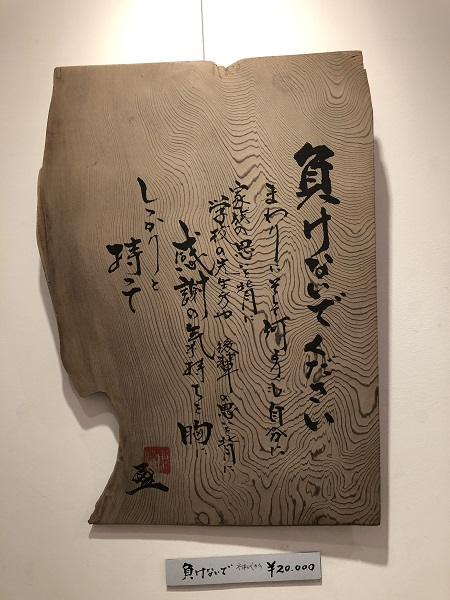 負けないでください
まわりにそして何よりも自分に
家族の思いを背に
学校の先生方や、後輩の思いを背に
感謝の気持ちを胸に
しっかりと
持て
負けないで ¥20.000